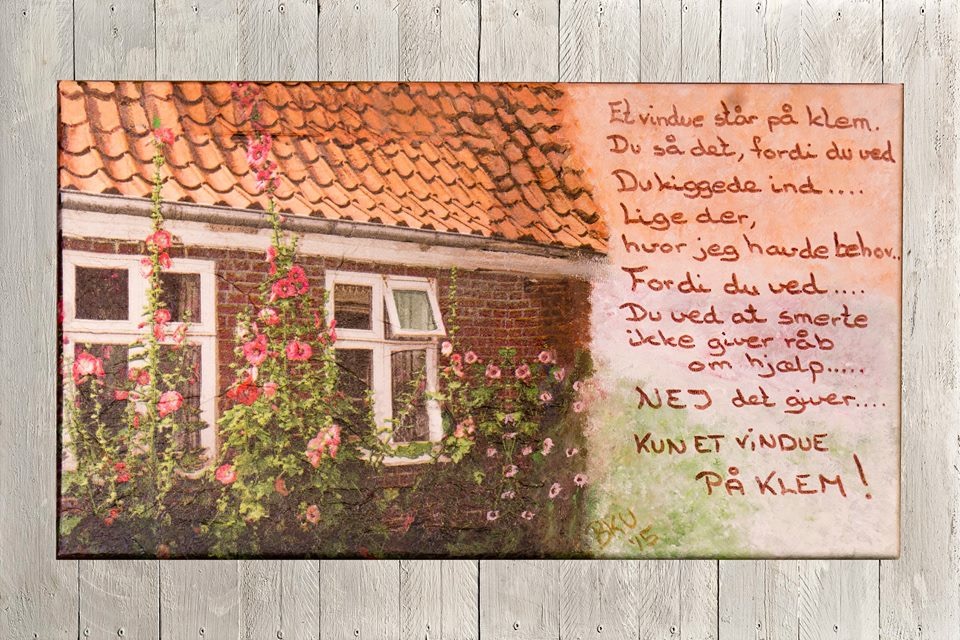 Et vindue står på klem.
Du så det, fordi du ved
Du kiggede ind.....
Lige der,
hvor jeg havde behov..
Fordi du ved....
Du ved at smerte
ikke giver råb
om hjælp.....
NEJ det giver....
KUN ET VINDUE
PÅ KLEM!
BKU
'15